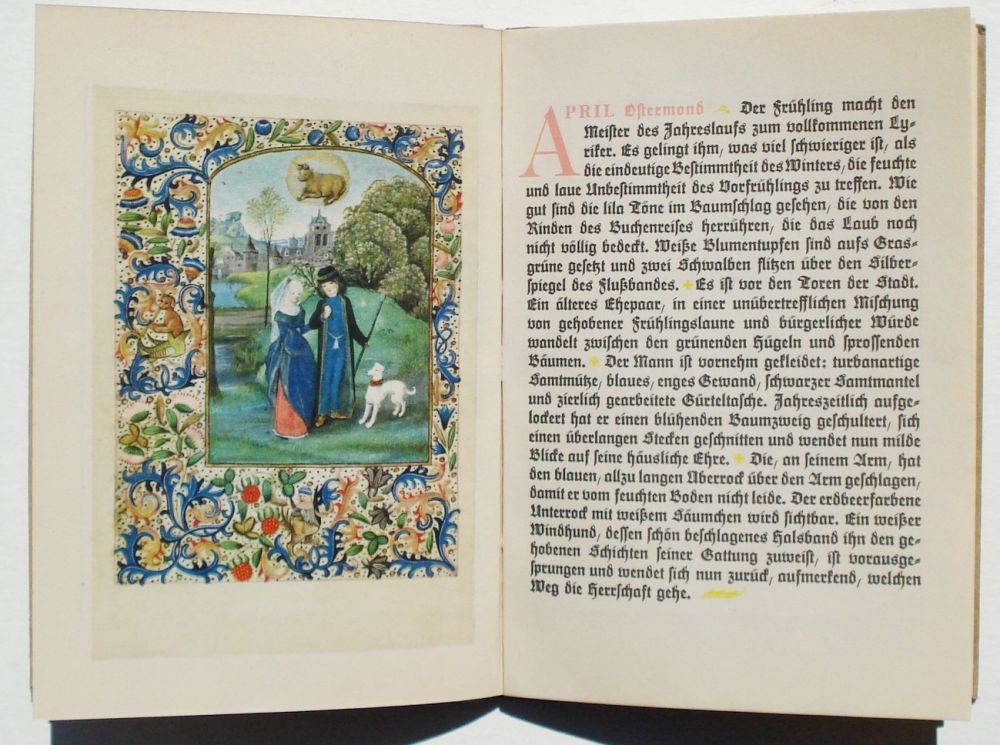 APRIL Ostermond Der Frühling macht den
Meister des Jahreslaufs zum vollkommenen Ly-
riker. Es gelingt ihm, was viel schwieriger ist, als
die eindeutige Bestimmtheit des Winters, die feuchte
und laue Unbestimmtheit des Vorfrühlings zu treffen. Wie
gut sind die lila Töne im Baumschlag gesehen, die von den
Rinden des Buchenreises herrühren, die das Laub noch
nicht völlig bedeckt. Weiße Blumentupfen sind aufs Gras-
grüne gesetzt und zwei Schwalben flitzen über den Silber-
spiegel des Flußbandes. Es ist vor den Toren der Stadt.
Ein älteres Ehepaar, in einer unübertrefflichen Mischung
von gehobener Frühlingslaune und bürgerlicher Würde
wandelt zwischen den grünenden Hügeln und sprossenden
Bäumen. Der Mann ist vornehm gekleidet: turbanartige
Samtmütze, blaues, enges Gewand, schwarzer Samtmantel
und zierlich gearbeitete Gürteltasche. Jahreszeitlich aufge-
lockert hat er einen blühenden Baumzweig geschultert, sich
einen überlangen Stecken geschnitten und wendet nun milde
Blicke auf seine häusliche Ehre. Die, an seinem Arm, hat
den blauen, allzu langen Überrock über den Arm geschlagen,
damit er vom feuchten Boden nicht leide. Der erdbeerfarbene
Unterrock mit weißem Säumchen wird sichtbar. Ein weißer
Windhund, dessen schön beschlagenes Halsband ihn den ge-
hobenen Schichten seiner Gattung zuweist, ist vorausge-
sprungen und wendet sich nun zurück, aufmerkend, welchen
Weg die Herrschaft gehe.